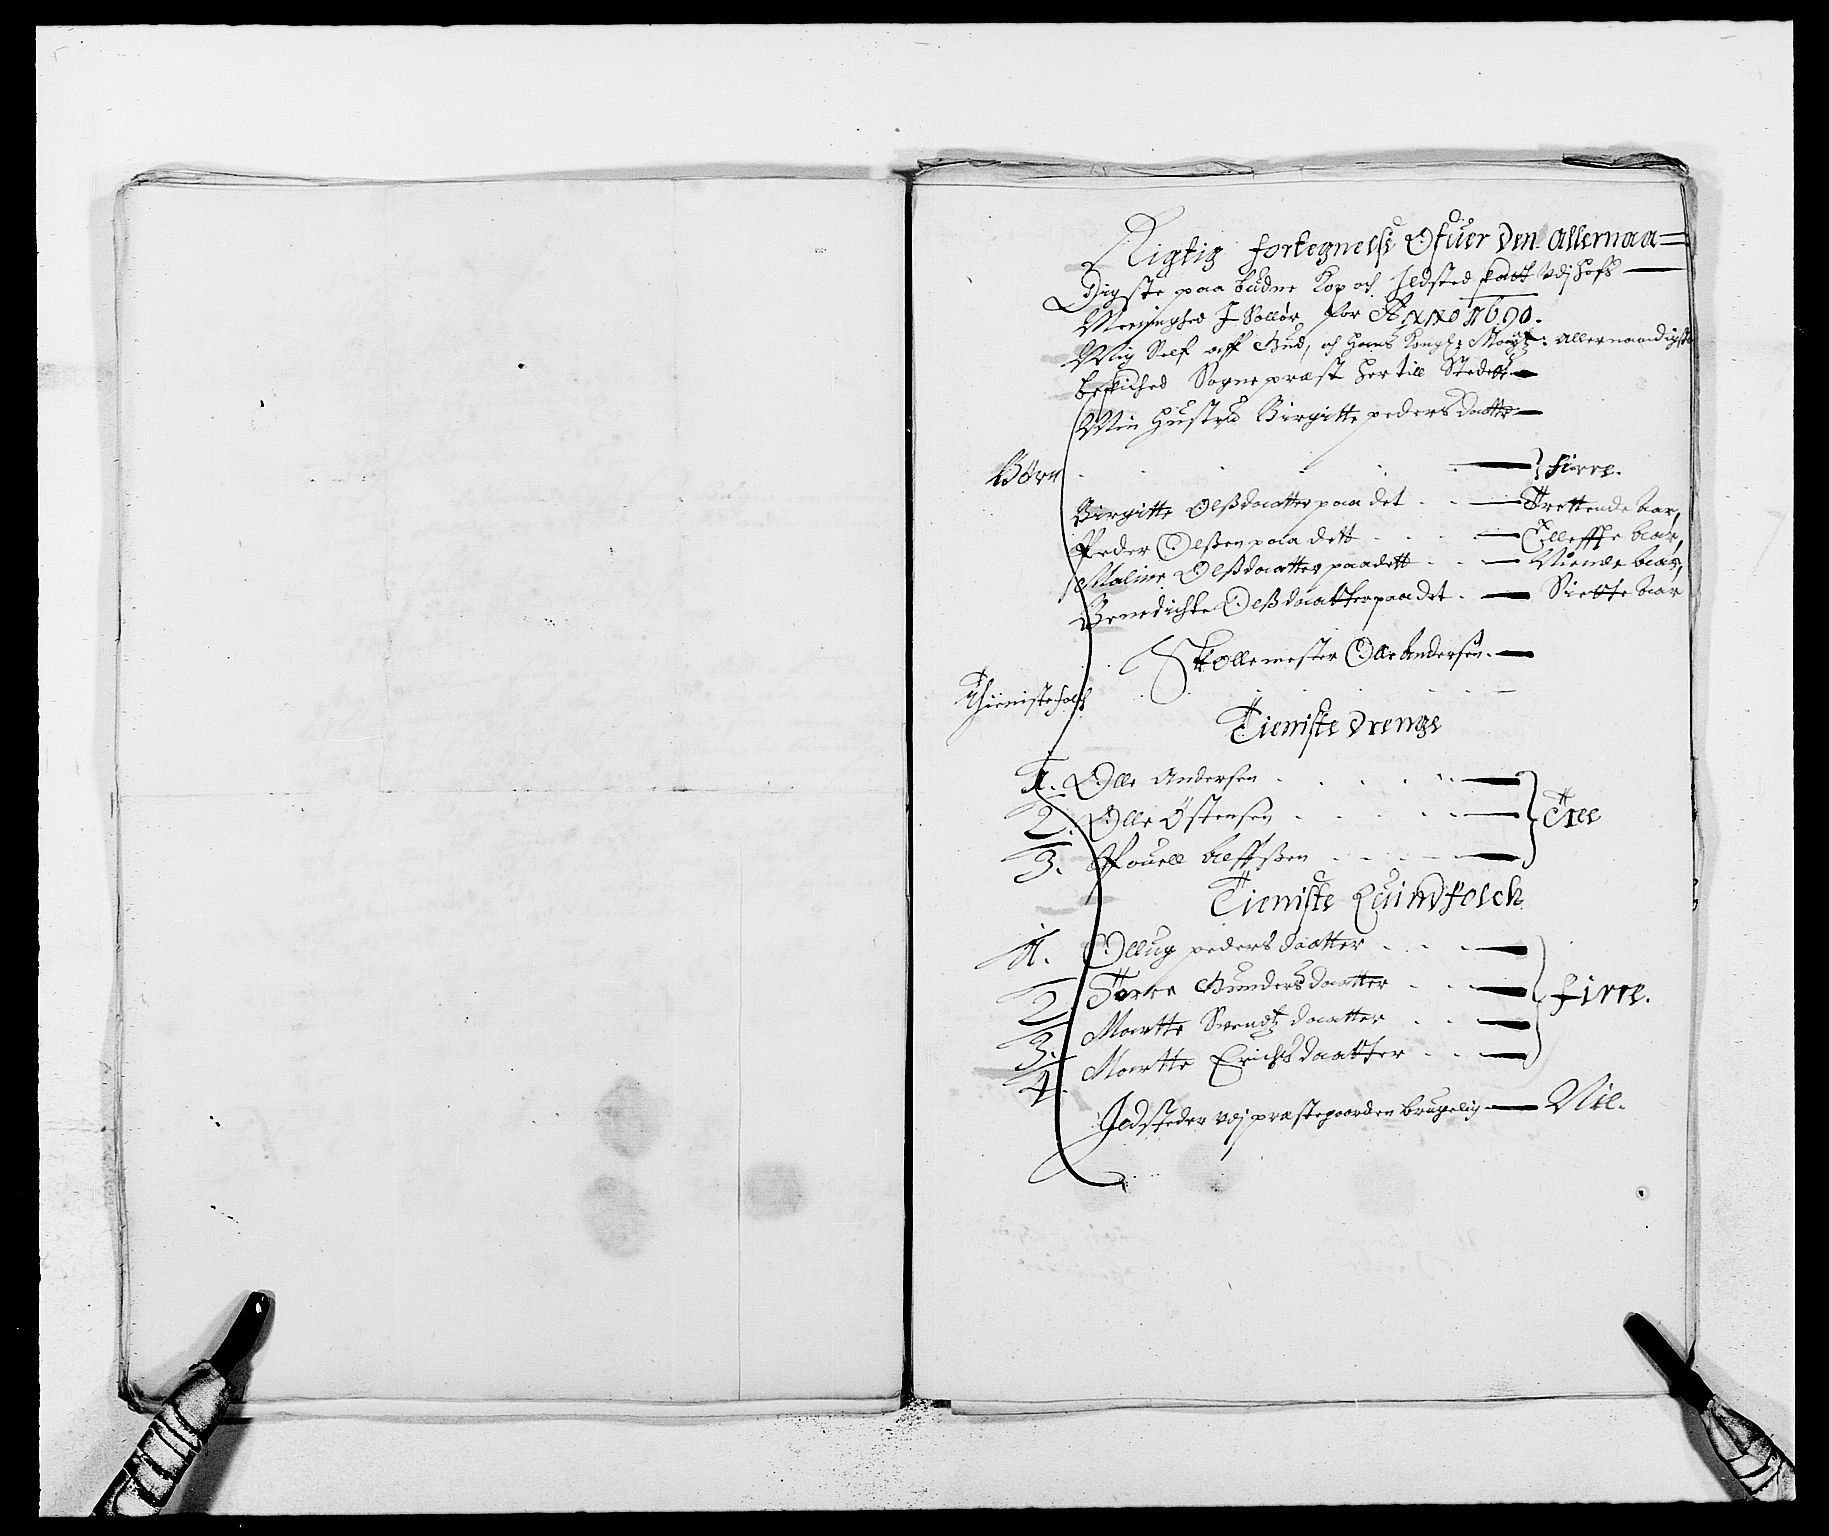 Rigtig fortegnelse Ofuer den Allernaa=
Digste paa budne Kop och Jldsted skatt Vdj Hofs
Meenighed J Sollør for Anno 1690.
Mig Self aff Gud, och Hans Kongl: Maytz: allernaadigste
beskiched Sogne præst her till Stedett
Min Hustrü Birgitte peders daatter
Børn firre.
Birgitte Olßdaatter paa det Trettende Aar,
Peder Olßen paa dett Elleffte Aar,
Maline Olßdaatter paa dett Niende Aar,
Benedichte Olßdaatter paa det Siette Aar
Skollemester Olle Andersen.
Thienistefolch
Tieniste Drenge
1. Olle Andersen
2. Olle Østensen Tree
3. Pouell Alffßen
Tieniste Quindfolch
1. Ollug peders daatter
2. Torre Gunders daatter firre.
3. Martte Svendtz daatter
4. Martte Erichs daatter
Jldsteder vdj præstegaarden brugelig Nie.